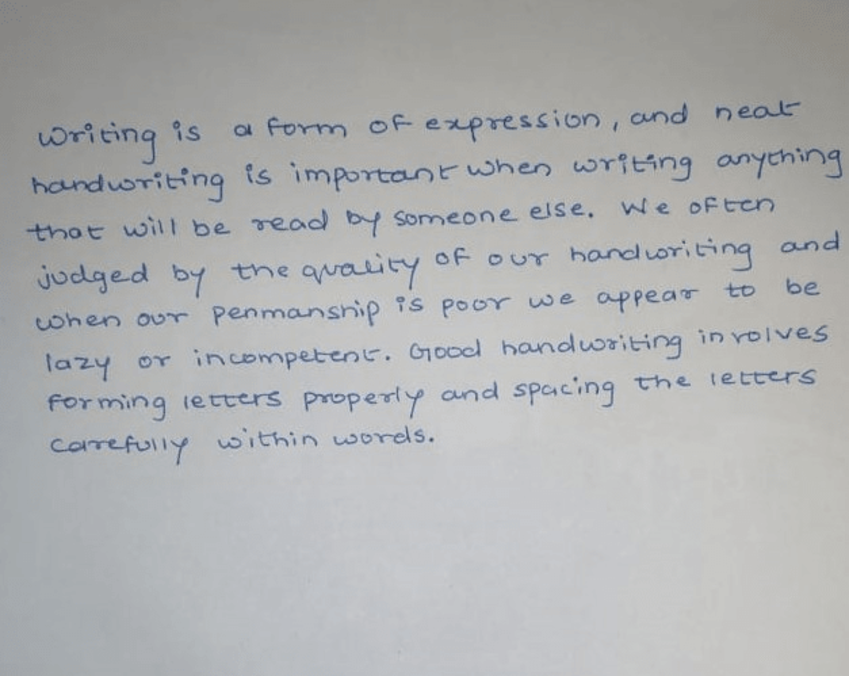 Writing is a form of expression, and neat
handwriting is important when writing anything
that will be read by someone else. We often
judged by the quality of our handwriting and
when our penmanship is poor we appear to be
lazy or incompetent. Good handwriting involves
forming letters properly and spacing the letters
carefully within words.